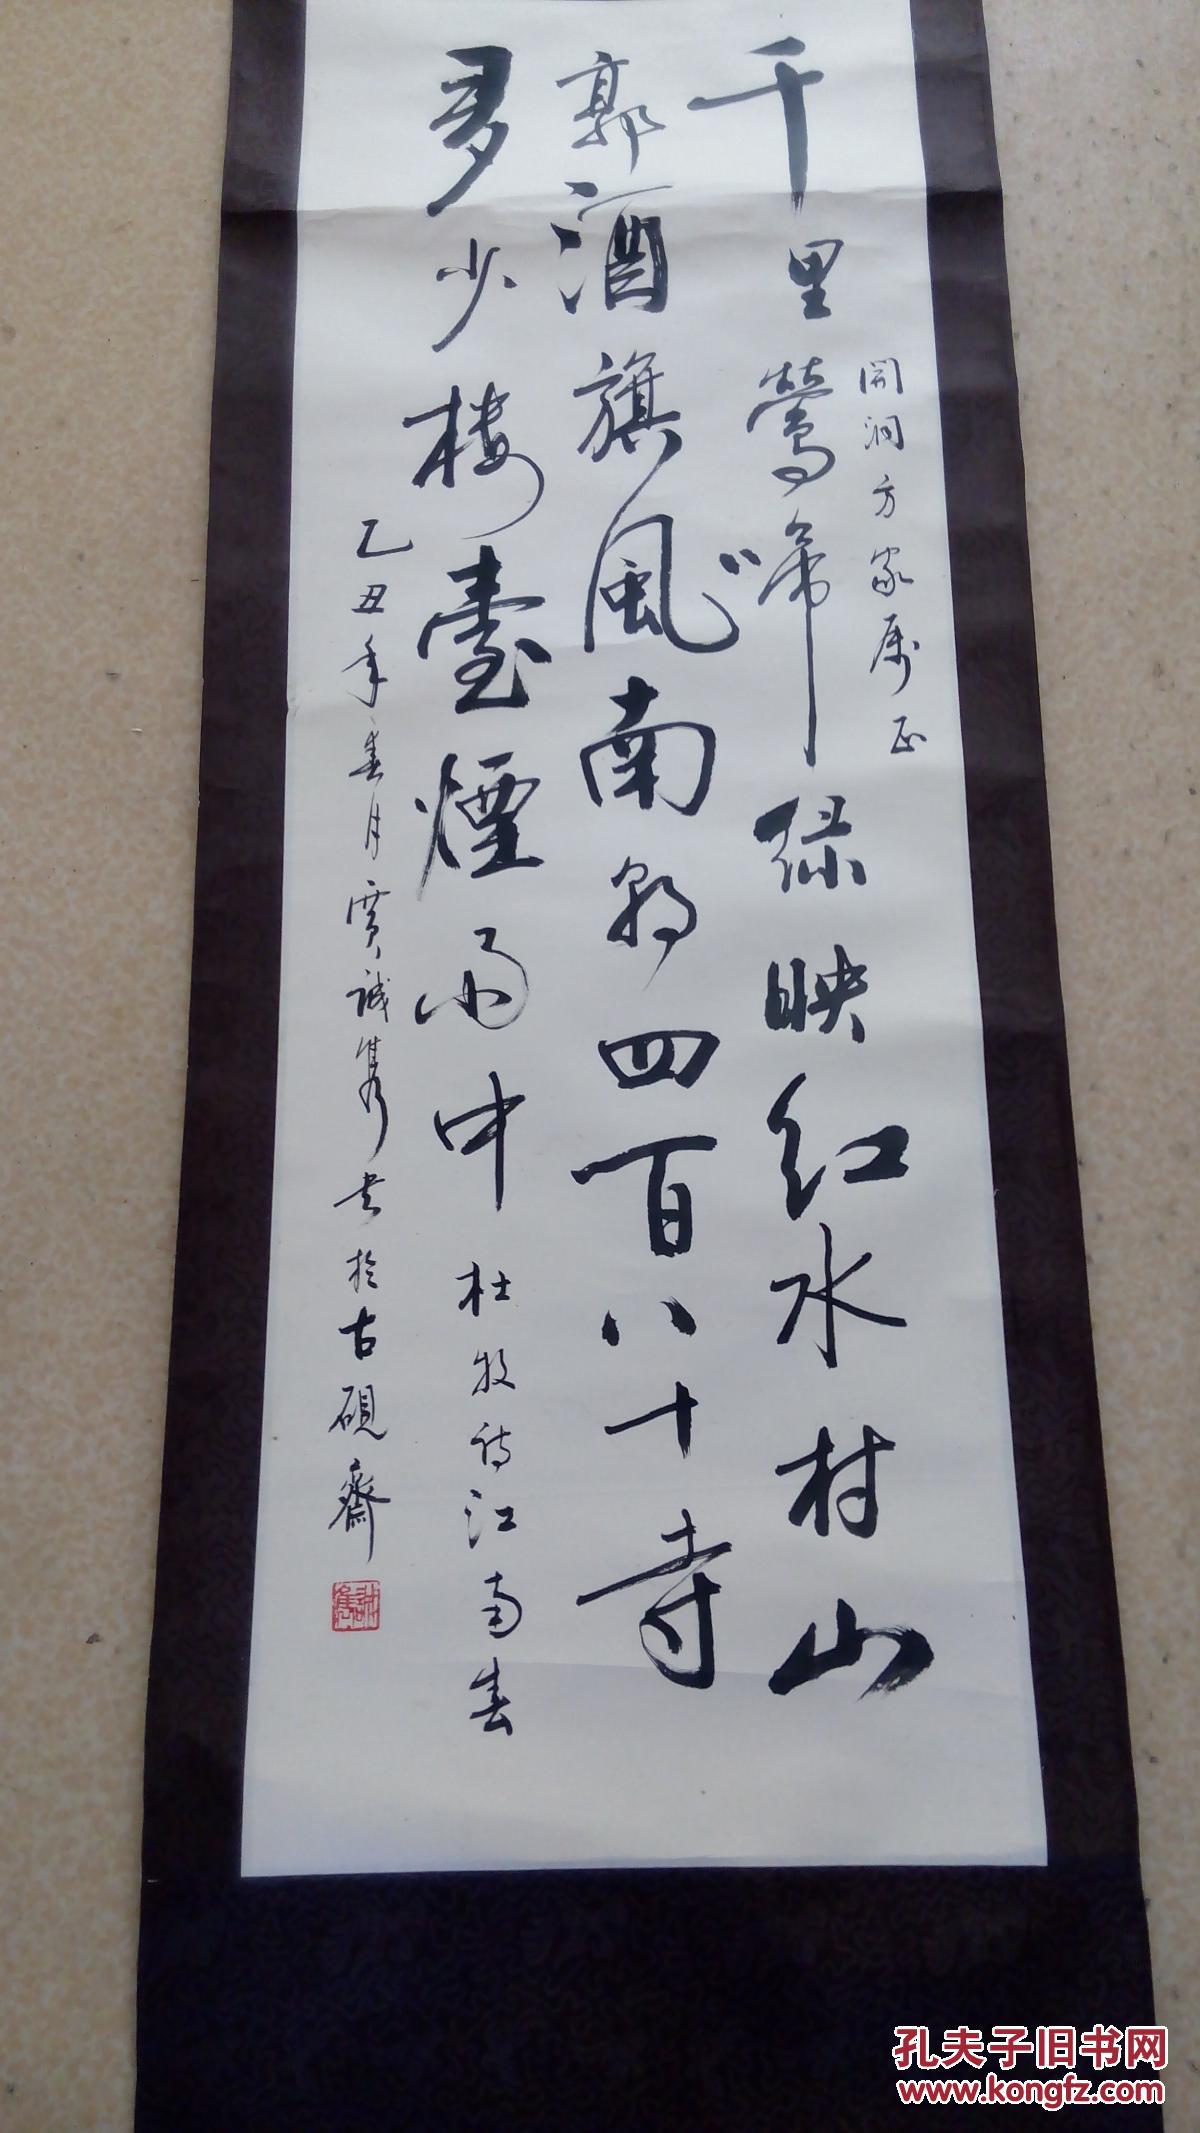 開洞方家属正
千里鶯啼绿映红水村山
郭酒旗風南朝四百八十寺
多少楼臺煙雨中
杜牧诗江南春
乙丑年春月賈誠雋书於古硯齋
誠雋
孔夫子旧书网
www.kongfz.com